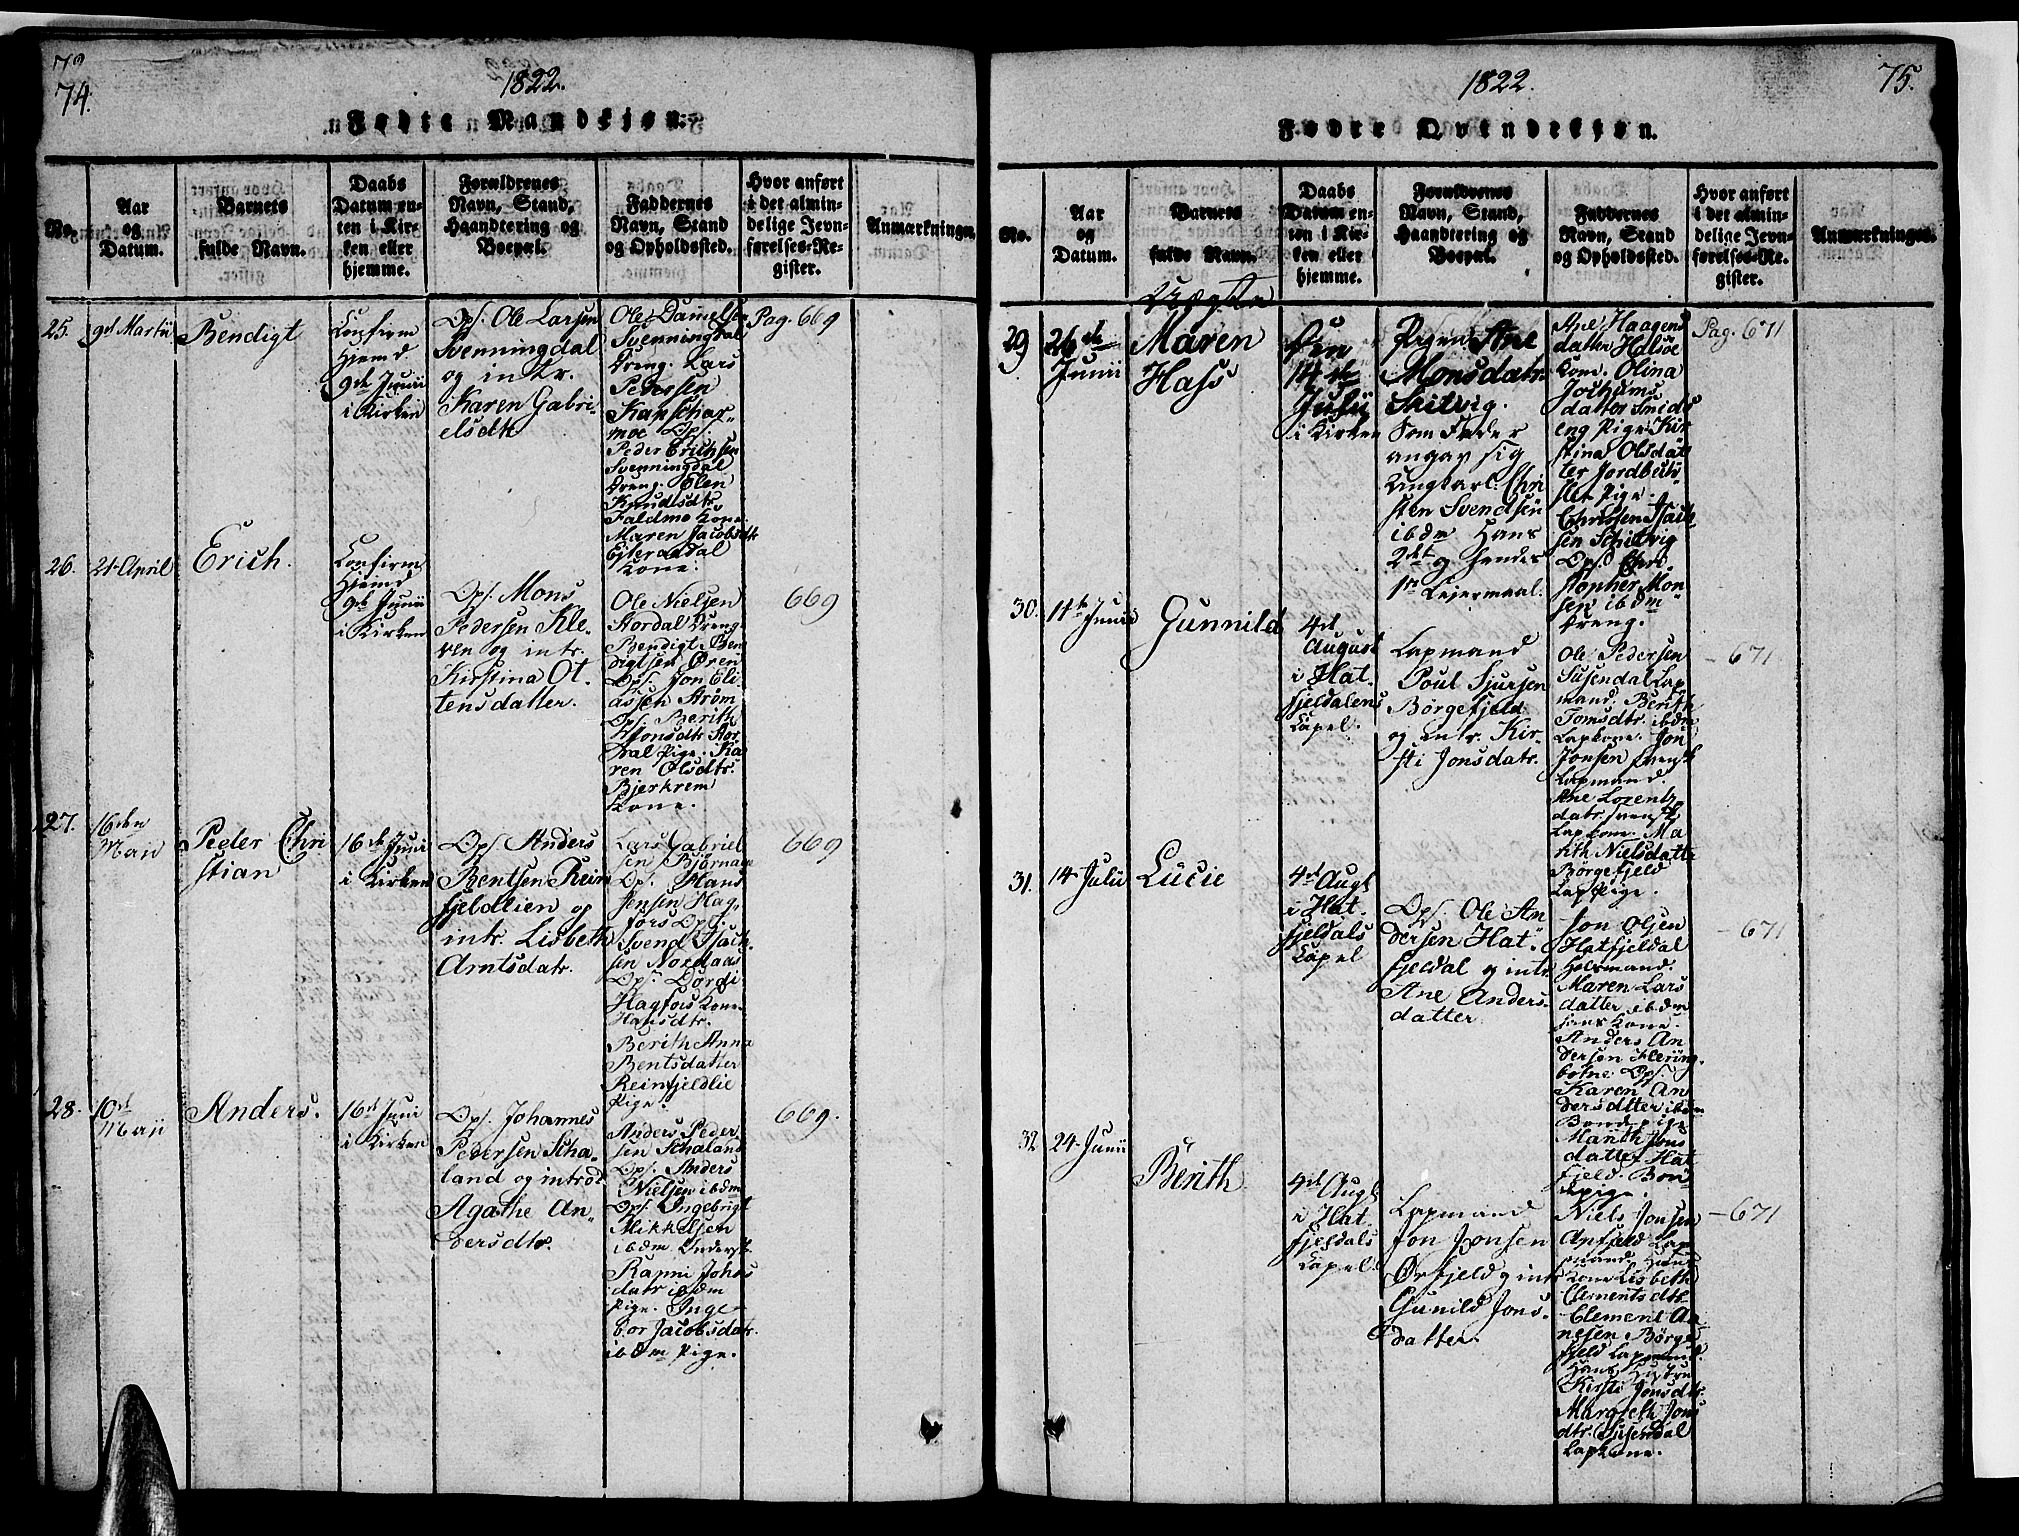 74.
1822.
Fødte Mandkjøn.
No.
Aar
og
Datum.
Barnets
fulde Navn.
Daabs
Datum en-
ten i Kir-
ken eller
hjemme.
Forældrenes
Navn, Stand,
Haandtering og
Boepæl.
Faddernes
Navn, Stand
og Opholdssted.
Hvor anført
i det almin-
delige Jevn-
førelses-Re-
gister.
Anmærkninger.
25.
9d Martii
Bendigt
Confirm
Hjemd
9de Junii
i Kirken
Ops. Ole Larsen
Svenningdal
og intr.
Karen Gabri-
elsdtr
Ole Danielsen
Svenningdal
Dreng. Lars
Pederssen
Kapschar-
moe Ops.
Peder Erichsen
Svenningdal
Dreng. Elen
Knudsdtr
Faldmo Kone
Maren Jacobsdtr
Eiteraadal
Kone.
Pag. 669
26.
21 April
Erich.
Confirm
Hjemd
9de Junii
i Kirken
Ops. Mons
Pedersen Kle-
ven og intr.
Kirstina Ot-
tensdatter.
Ole Nielsen
Stordal Dreng
Bendigt Ben
digtsen Øren
Ops. Jon Eli-
assen Strøm
Ops. Berith
Monsdtr Stor
dal Pige. Ka
ren Olsdtr.
Bjerkrem
Kone.
669
27.
16den
Maii
Peder Chri
stian
16de Junii
i Kirken
Ops. Anders
Bentsen Rein
fjeldlien og
intr. Lisbeth
Arntsdatr.
Lars Gabriel
sen Bjørnaae
Ops. Hans
Jensen Hag-
fors Ops.
Svend Isach-
sen Nordaas
Ops. Dordi
Hagfors Kone
Hansdtr.
Berith Anna
Bentsdatter
Reinfjeldlie
Pige.
669
28.
10de
Maii
Anders.
16d Juni
i Kirken
Ops. Johannes
Pedersen Scha-
land og introd
Agathe An-
dersdtr.
Anders Peder-
sen Schaland
Ops. Anders
Nielsen ibdm
Ops. Ingebrigt
Mikkelsen
ibdm.
Rapni Johns
datr ibdm
Pige. Inge-
bor Jacobsdatr.
ibdm Pige.
669.
75.
1822.
Fødte Qvindekjøn.
No.
Aar
og
Datum.
Barnets
fulde Navn.
Daabs
Datum en-
ten i Kir-
ken eller
hjemme.
Forældrenes
Navn, Stand,
Haandtering og
Boepæl.
Faddernes
Navn, Stand
og Opholdssted.
Hvor anført
i det almin-
delige Jevn-
førelses-Re-
gister.
Anmærkninger.
29
26de
Junii
Uægte
Maren
Hass
Den
14de
Julii
i Kirken
Pigen Ane
Monsdatr.
Skilvig.
Som Fader
angav sig
Ungkarl. Chri
sten Svendsen
ibdm Hans
2det og hendes
1ste Leiermaal.
Ane Haagens
datter Halsøe
Kone. Olina
Jochums
datter Smids
eng Pige. Kir
stina Olsdat
ter Jordbru
Pige.
Isach
sen Schilvig
Ops. Chri
stopher Mon
sen ibdm
Dreng.
Pag. 671
30.
11te Junii
Gunnild
4de
August
i Hat
fjeldalens
Capel.
Lapmand
Poul Sjursen
Børgefjeld
og intr. Kir-
sti Jonsdatr.
Ole Pedersen
Susendal Lap
mand. Berith
Tomsdtr. ibdm
Lapkone. Jon
Jonsen svensk
Lapmand.
Ane Lorents
datr. svensk
Lapkone. Ma
rith Nielsdatter
Børgefjeld
Lap Pige.
- 671
31.
14 Julii
Lucie
4de Augt
i Hat-
fjeldals
Capel
Ops. Ole An
dersen Hat-
fjeldal og intr.
Ane Anders.
datter
Jon Olsen
Hatfjeldal
Maren Lars
datter ibdm
hans Kone.
Anders An
dersen
Ops.
Karen An
dersdatter ibdm
Bondepige
Marith Jons
datter Hat
fjeld. Bon-
depige.
- 671
32
24 Junii
Berith
4de Augt
i Hat
fjeldals
Capel.
Lapmand
Jon Jonsen
Ørfjeld og intr
Gunild Jons-
datter.
Niels Jonsen
Apfjeld Lap
mand. Hans
Kone Lisbeth
Clementsdtr.
Clement Ar
nesen Børge
fjeld Lapmand.
Hans Hustru
Kirsti Jonsdtr.
Margreth Jons
dtr. Susendal
Lapkone.
- 671